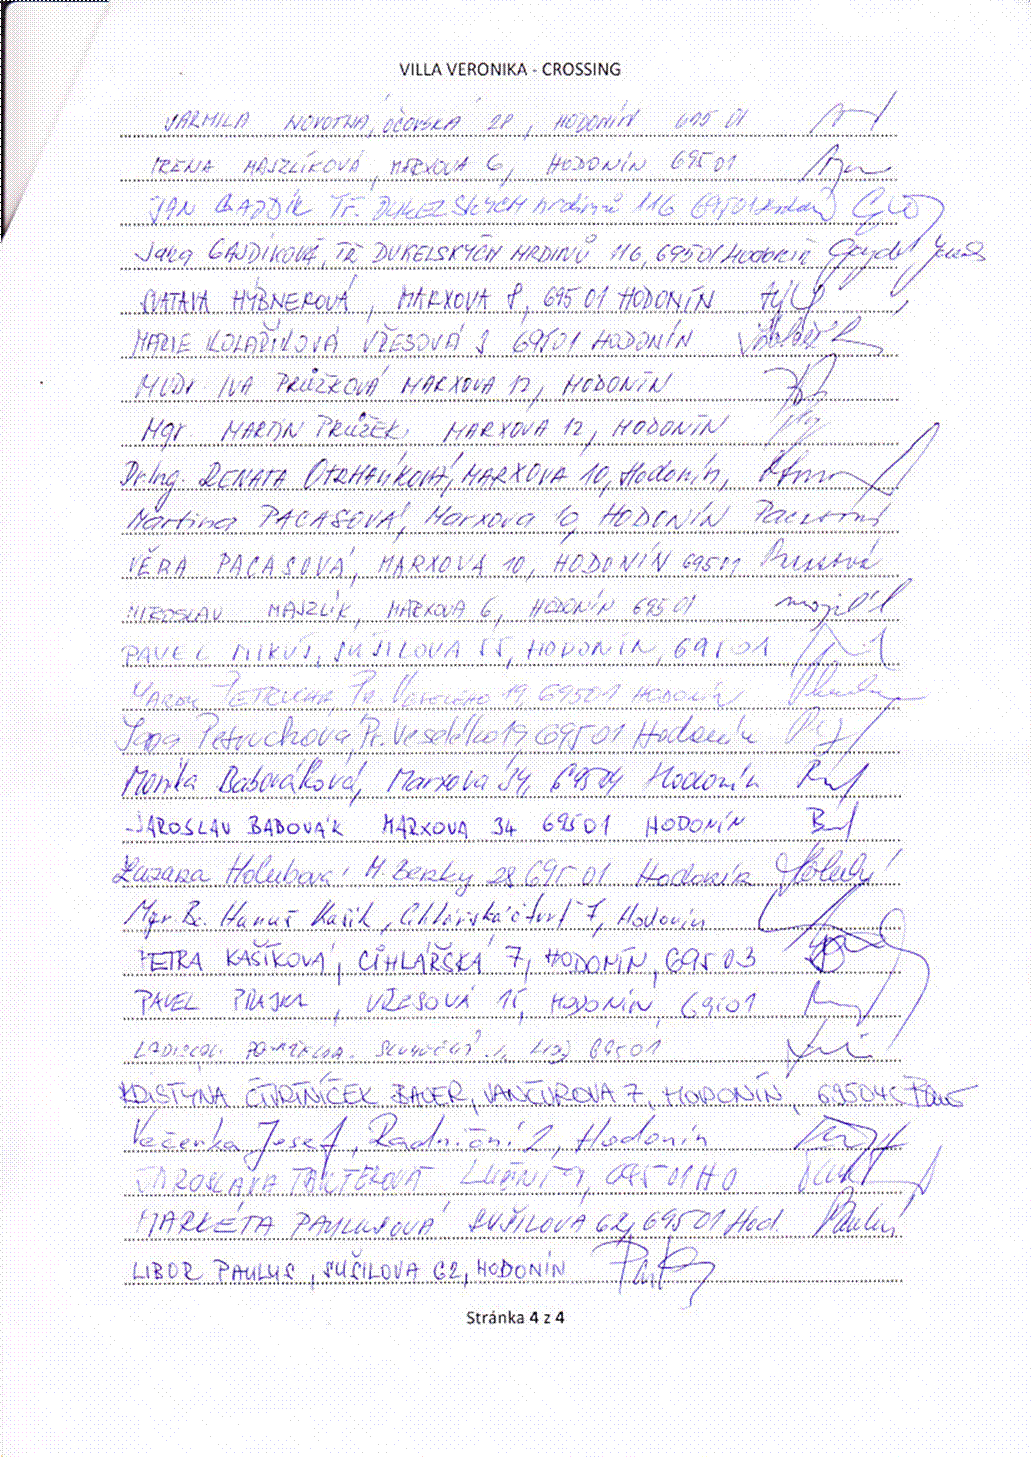 VILLA VERONIKA - CROSSING
JARMILA NOVOTNÁ, OČOVSKÁ 28, HODONÍN 695 01
IRENA MAJZLÍKOVÁ, MARXOVA 6, HODONÍN 69501
JAN GAJDÍK TŘ. DUKELSKÝCH HRDINŮ 116 69501
Jana GAJDÍKOVÁ, TŘ DUKELSKÝCH HRDINŮ 116, 69501 Hodonín
SVATAVA HÝBNEROVÁ, MARXOVA 8, 695 01 HODONÍN
MARIE KOLAŘÍKOVÁ VŘESOVÁ 69501 HODONÍN
MUDr. IVA PRŮŽKOVÁ MARXOVA 12, HODONÍN
Mgr. MARTIN PRŮŽEK, MARXOVA 12, HODONÍN
Dr. Ing. RENATA OTRHALÍKOVÁ, MARXOVA 10, Hodonín,
Martina PACASOVÁ, Marxova 10, HODONÍN Pacasová
VĚRA PACASOVÁ, MARXOVA 10, HODONÍN 69501 Pacasová
MIROSLAV MAJZLÍK, MARXOVA 6, HODONÍN 69501
PAVEL MIKUŠ, SUŠILOVA 55, HODONÍN, 69501
PETRUCHA, Pr. VESELÉHO 19, 69501 HODONÍN
Jana Petruchová, Pr. Veselého 19, 69501 Hodonín
Monika Babováková, Marxova 34, 69501 Hodonín
JAROSLAV BABOVÁK MARXOVA 34 69501 HODONÍN
Zuzana Holubová, M. Benky 28 69501 Hodonín
Mgr. Bc. Hanuš Kašík, Cihlářská čtvrť 7, Hodonín
PETRA KAŠÍKOVÁ, CIHLÁŘSKÁ 7, HODONÍN, 69503
PAVEL VŘESOVÁ 15, HODONÍN, 69501
LADISLAV 69501
KRISTÝNA ČTVRTNÍČEK BAUER, VANČUROVA 7, HODONÍN,
Večerka Josef, Radniční 2, Hodonín
JAROSLAVA LUČNÍ 69501 HO
MARKÉTA PAULUSOVÁ SUŠILOVA 62, 69501 Hod.
LIBOR PAULUS, SUŠILOVA 62, HODONÍN
Stránka 4 z 4